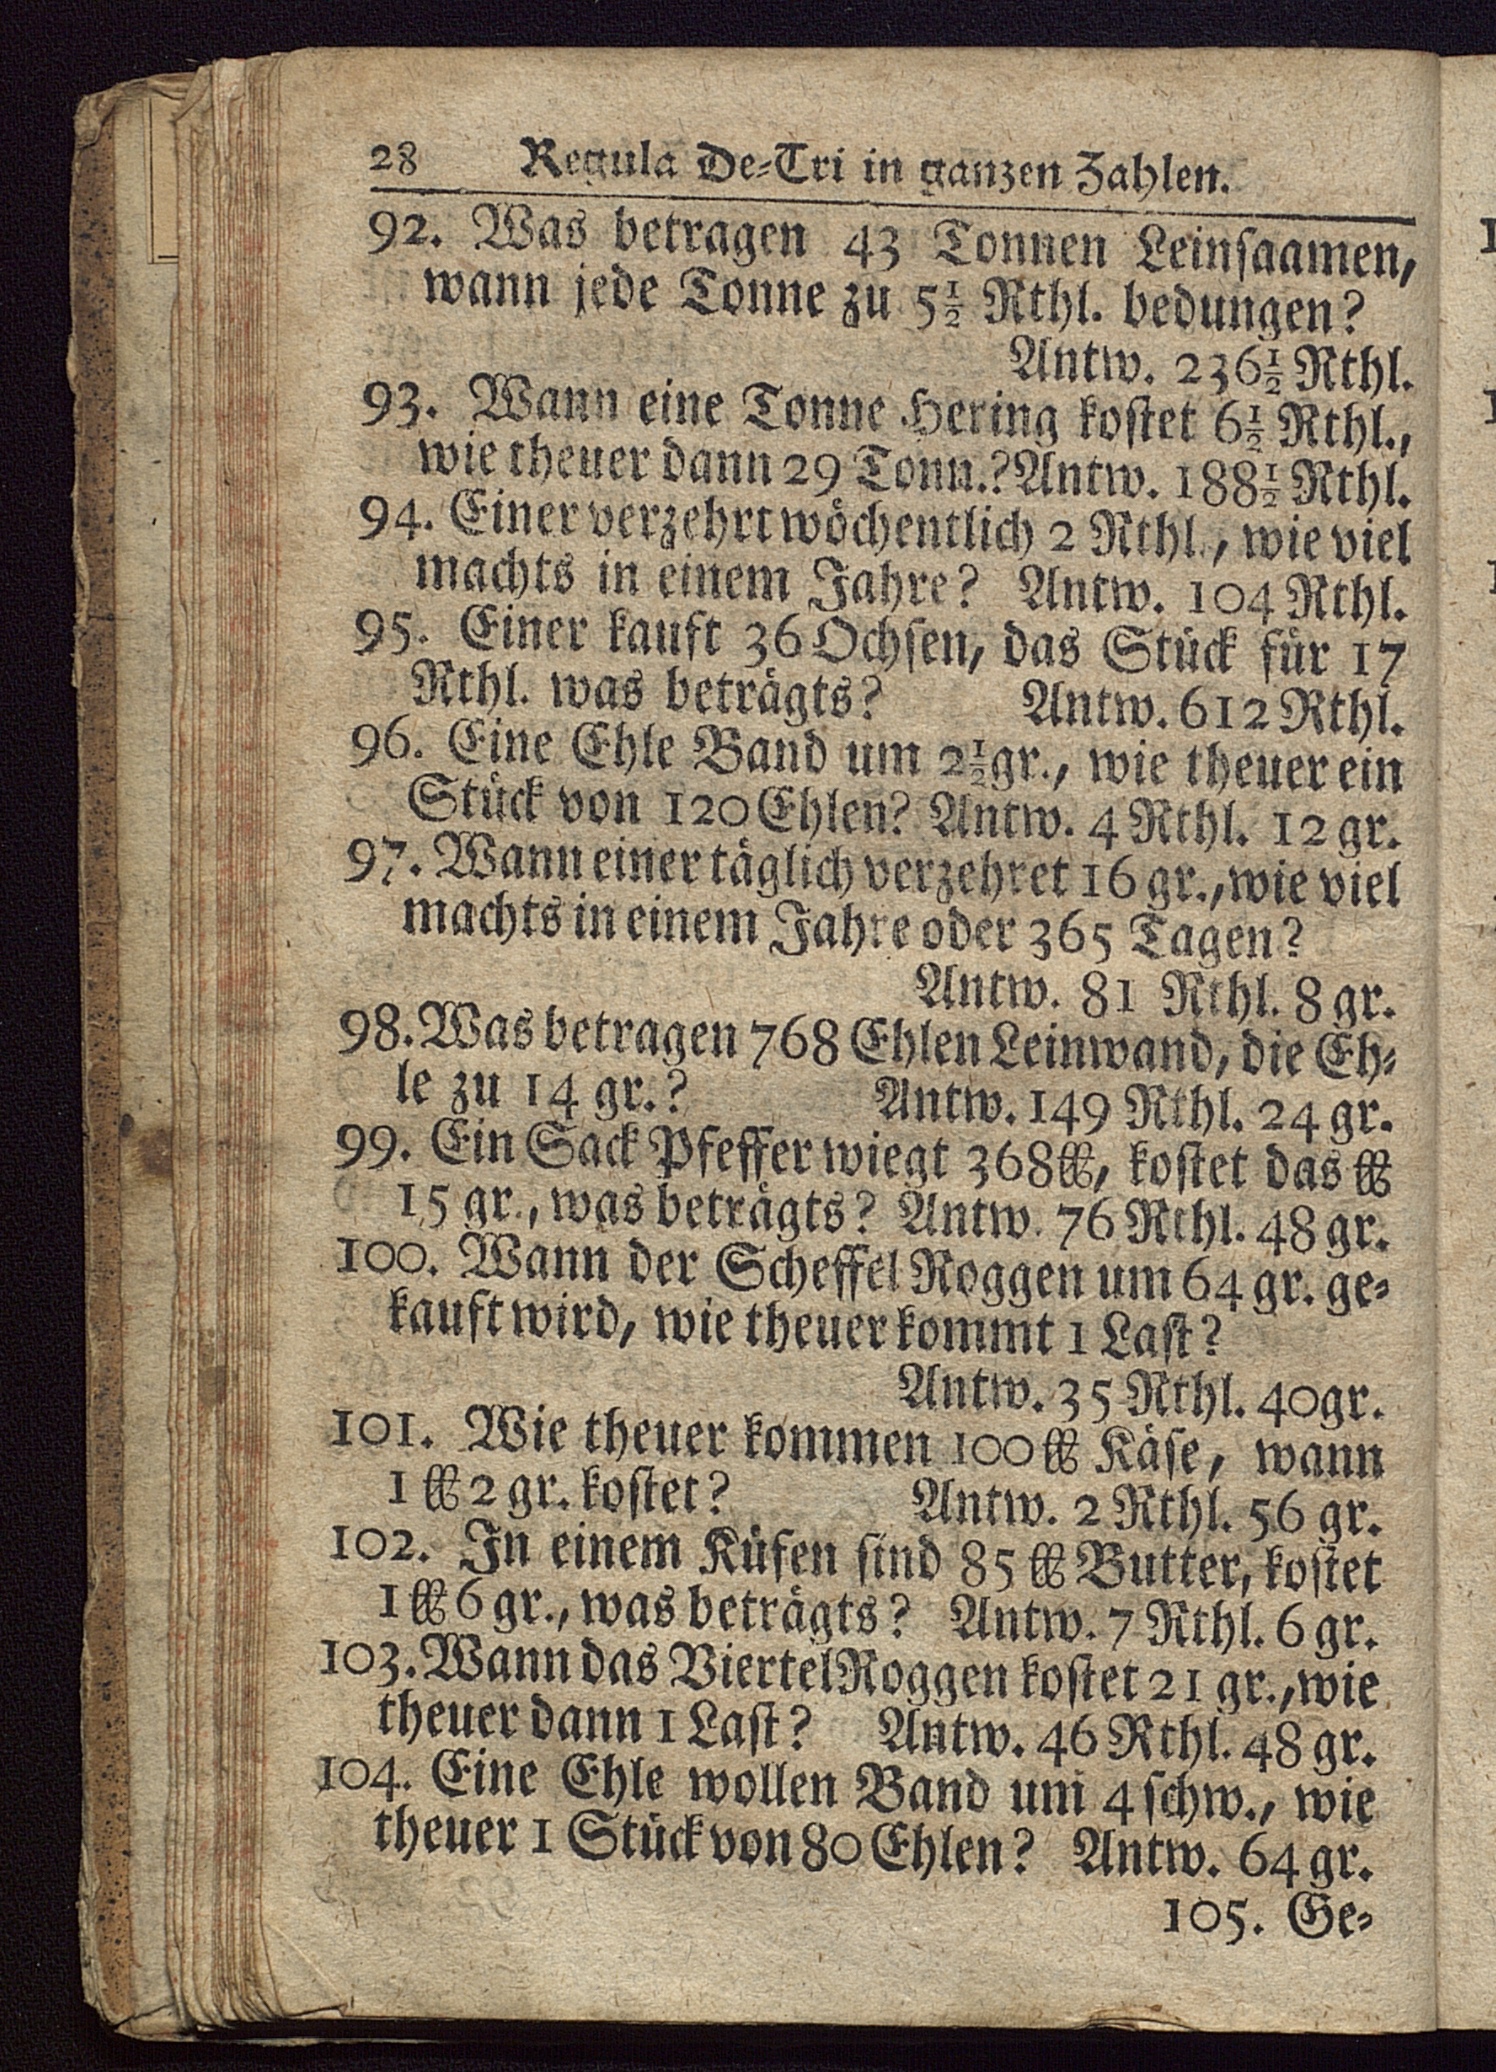 28 Regula De-Tri in ganzen Zahlen.
92. Was betragen 43 Tonnen Leinſaamen,
wann jede Tonne zu 5½ Rthl. bedungen?
Antw. 236½ Rthl.
93. Wann eine Tonne Hering koſtet 6½ Rthl.,
wie theuer dann 29 Tonn.? Antw. 188½ Rthl.
94. Einer verzehrt wöchentlich 2 Rthl., wie viel
machts in einem Jahre? Antw. 104 Rthl.
95. Einer kauft 36 Ochſen, das Stück für 17
Rthl. was beträgts? Antw. 612 Rthl.
96. Eine Ehle Band um 2½ gr., wie theuer ein
Stück von 120 Ehlen? Antw. 4 Rthl. 12 gr.
97. Wann einer täglich verzehret 16 gr., wie viel
machts in einem Jahre oder 365 Tagen?
Antw. 81 Rthl. 8 gr.
98. Was betragen 768 Ehlen Leinwand, die Eh-
le zu 14 gr.? Antw. 149 Rthl. 24 gr.
99. Ein Sack Pfeffer wiegt 368 ℔, koſtet das ℔
15 gr., was beträgts? Antw. 76 Rthl. 48 gr.
100. Wann der Scheffel Roggen um 64 gr. ge-
kauft wird, wie theuer kommt 1 Laſt?
Antw. 35 Rthl. 40 gr.
101. Wie theuer kommen 100 ℔ Käſe, wann
1 ℔ 2 gr. koſtet? Antw. 2 Rthl. 56 gr.
102. In einem Küfen ſind 85 ℔ Butter, koſtet
1 ℔ 6 gr., was beträgts? Antw. 7 Rthl. 6 gr.
103. Wann das Viertel Roggen koſtet 21 gr., wie
theuer dann 1 Laſt? Antw. 46 Rthl. 48 gr.
104. Eine Ehle wollen Band um 4 ſchw., wie
theuer 1 Stück von 80 Ehlen? Antw. 64 gr.
105. Ge-